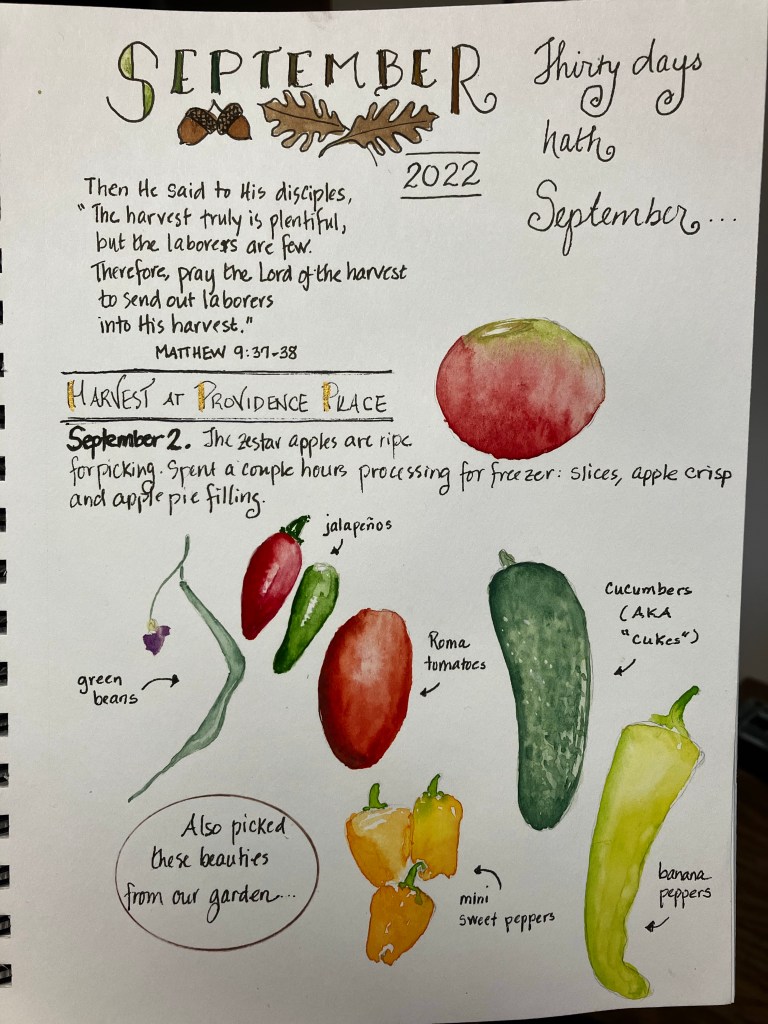 SEPTEMBER
2022
Thirty days
hath
September...
Then He said to His disciples,
"The harvest truly is plentiful,
but the laborers are few.
Therefore, pray the Lord of the harvest
to send out laborers
into His harvest."
MATTHEW 9:37-38
HARVEST AT PROVIDENCE PLACE
September 2. The zestar apples are ripe
for picking. Spent a couple hours processing for freezer: slices, apple crisp
and apple pie filling.
jalapeños
green
beans
Roma
tomatoes
cucumbers
(AKA
"cukes")
Also picked
these beauties
from our garden...
mini
sweet peppers
banana
peppers